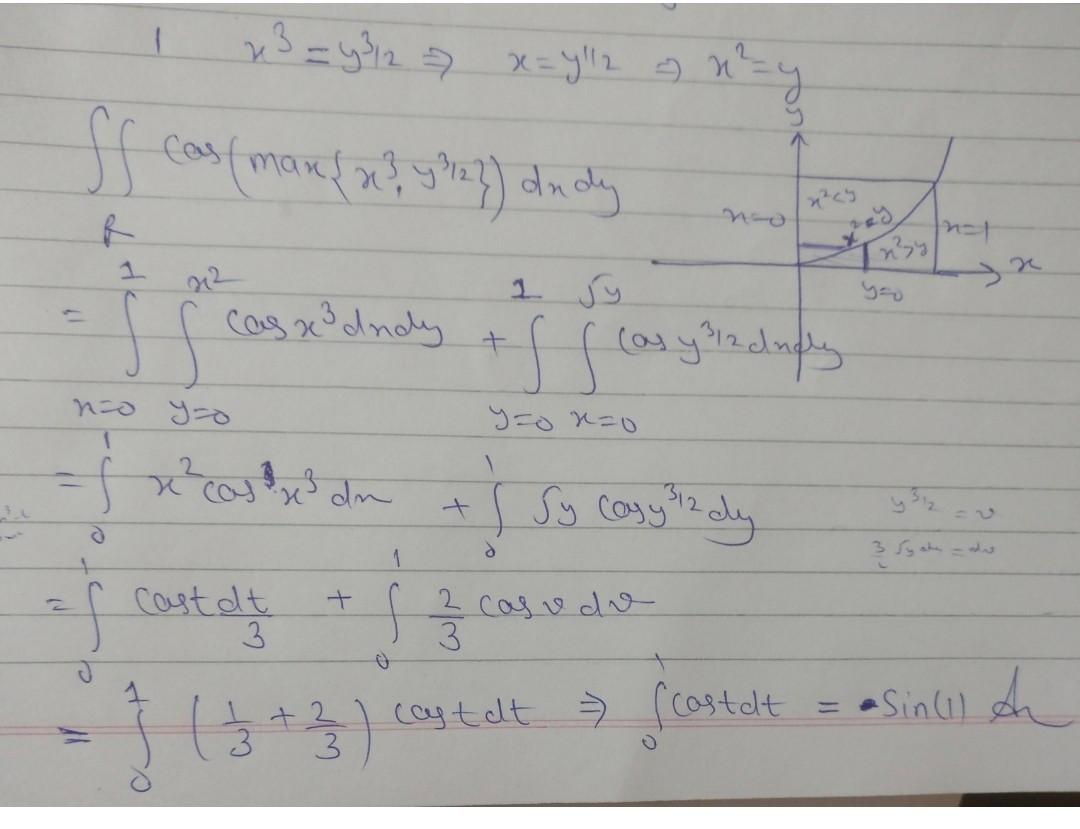 1 x³ = y^3/2 ⇒ x = y^1/2 ⇒ x² = y
∫∫_R cos(max{x³, y^3/2}) dx dy
y
x=0 x²<y x²=y x²>y x=1 x
y=0
= ∫_{x=0}^{1} ∫_{y=0}^{x²} cos x³ dx dy + ∫_{y=0}^{1} ∫_{x=0}^{√y} cos y^3/2 dx dy
= ∫_0^1 x² cos x³ dx + ∫_0^1 √y cos y^3/2 dy
y^3/2 = v
3/2 √y dy = dv
= ∫_0^1 cos t dt/3 + ∫_0^1 2/3 cos v dv
= ∫_0^1 (1/3 + 2/3) cos t dt ⇒ ∫_0^1 cos t dt = Sin(1)